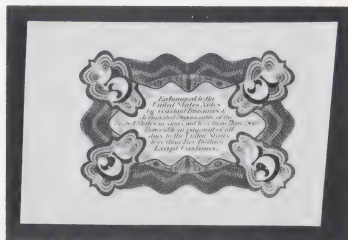 Exchangeable for
United States Notes
by Assistant Treasurers &
designated Depositaries of the
United States in sums not less than Five
Receivable in payment of all
dues to the United States
less than Five Dollars
Except Customs.